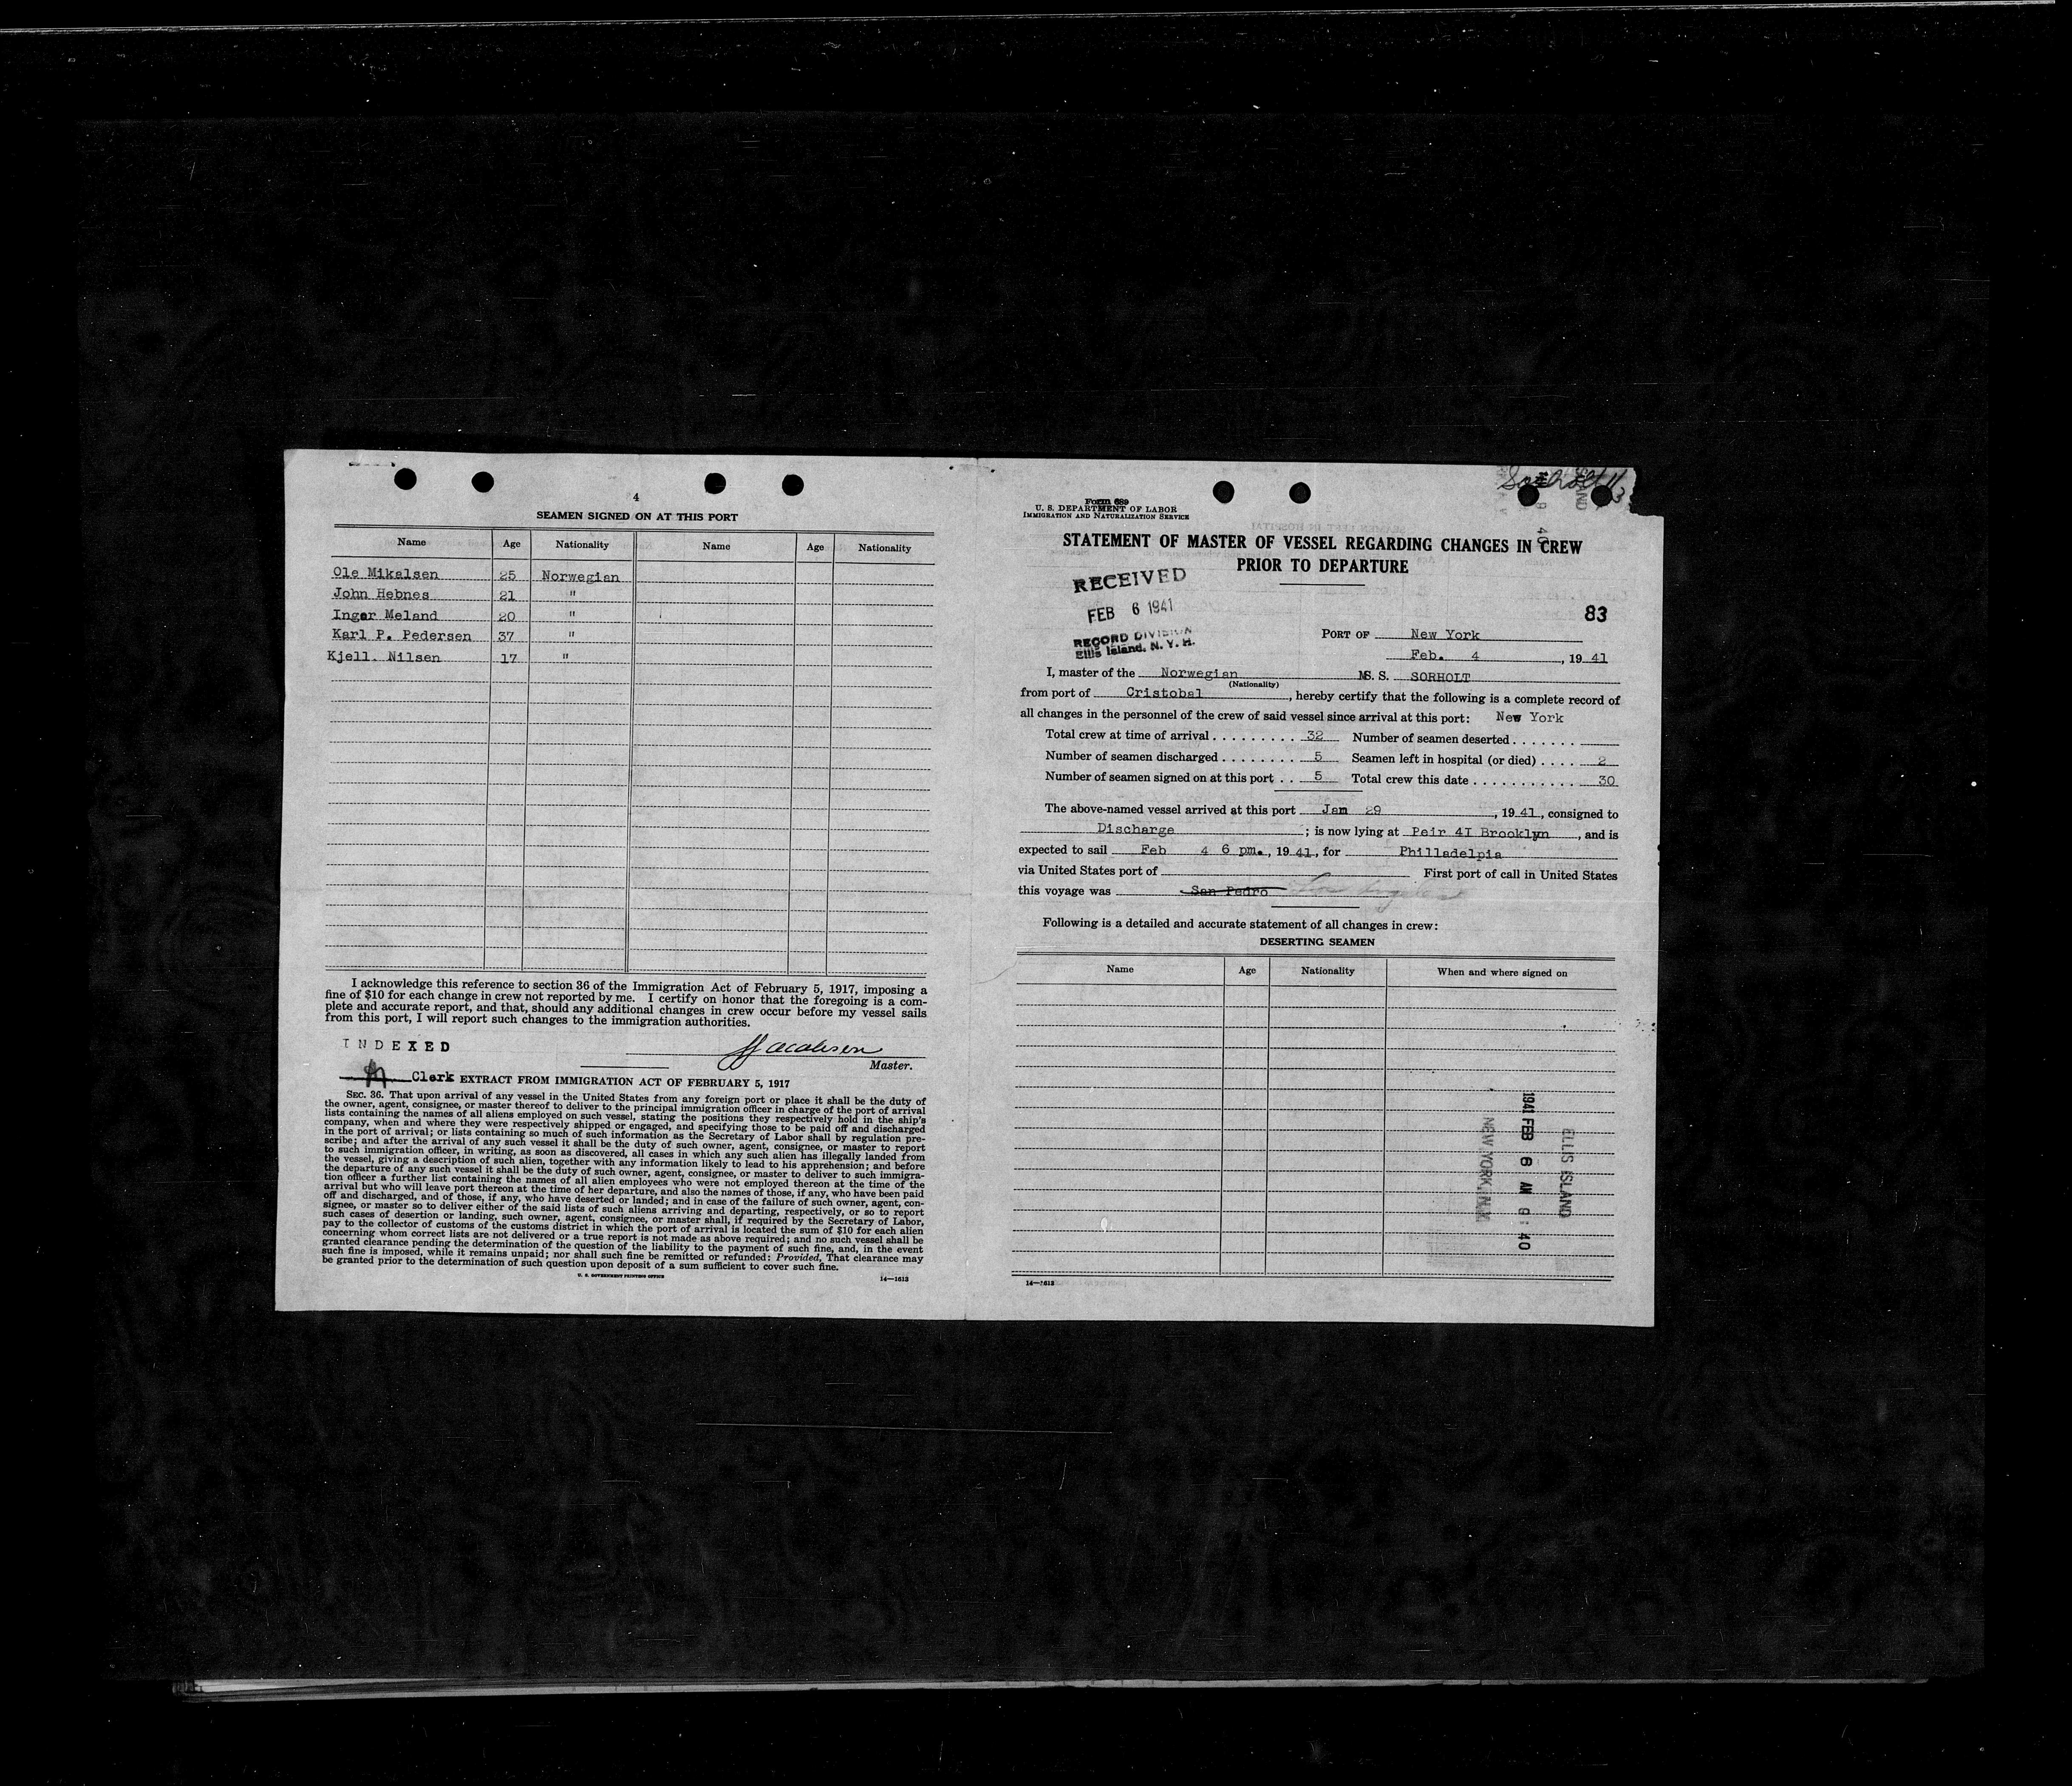 4
SEAMEN SIGNED ON AT THIS PORT
Name Age Nationality Name Age Nationality
Ole Mikalsen 25 Norwegian
John Hebnes 21 "
Inger Meland 20 "
Karl P. Pedersen 37 "
Kjell. Nilsen 17 "
I acknowledge this reference to section 36 of the Immigration Act of February 5, 1917, imposing a
fine of $10 for each change in crew not reported by me. I certify on honor that the foregoing is a com-
plete and accurate report, and that, should any additional changes in crew occur before my vessel sails
from this port, I will report such changes to the immigration authorities.
INDEXED
Jacobsen
Master.
Clerk
EXTRACT FROM IMMIGRATION ACT OF FEBRUARY 5, 1917
SEC. 36. That upon arrival of any vessel in the United States from any foreign port or place it shall be the duty of
the owner, agent, consignee, or master thereof to deliver to the principal immigration officer in charge of the port of arrival
lists containing the names of all aliens employed on such vessel, stating the positions they respectively hold in the ship's
company, when and where they were respectively shipped or engaged, and specifying those to be paid off and discharged
in the port of arrival; or lists containing so much of such information as the Secretary of Labor shall by regulation pre-
scribe; and after the arrival of any such vessel it shall be the duty of such owner, agent, consignee, or master to report
to such immigration officer, in writing, as soon as discovered, all cases in which any such alien has illegally landed from
the vessel, giving a description of such alien, together with any information likely to lead to his apprehension; and before
the departure of any such vessel it shall be the duty of such owner, agent, consignee, or master to deliver to such immigra-
tion officer a further list containing the names of all alien employees who were not employed thereon at the time of the
arrival but who will leave port thereon at the time of her departure, and also the names of those, if any, who have been paid
off and discharged, and of those, if any, who have deserted or landed; and in case of the failure of such owner, agent, con-
signee, or master so to deliver either of the said lists of such aliens arriving and departing, respectively, or so to report
such cases of desertion or landing, such owner, agent, consignee, or master shall, if required by the Secretary of Labor,
pay to the collector of customs of the customs district in which the port of arrival is located the sum of $10 for each alien
concerning whom correct lists are not delivered or a true report is not made as above required; and no such vessel shall be
granted clearance pending the determination of the question of the liability to the payment of such fine, and, in the event
such fine is imposed, while it remains unpaid; nor shall such fine be remitted or refunded: Provided, That clearance may
be granted prior to the determination of such question upon deposit of a sum sufficient to cover such fine.
U. S. GOVERNMENT PRINTING OFFICE 14—1613
Sorholt
Form 689
U. S. DEPARTMENT OF LABOR
IMMIGRATION AND NATURALIZATION SERVICE
STATEMENT OF MASTER OF VESSEL REGARDING CHANGES IN CREW
PRIOR TO DEPARTURE
RECEIVED
FEB 6 1941
RECORD DIVISION
Ellis Island, N. Y. H.
83
PORT OF New York
Feb. 4, 1941
I, master of the Norwegian MS. S. SORHOLT
(Nationality)
from port of Cristobal, hereby certify that the following is a complete record of
all changes in the personnel of the crew of said vessel since arrival at this port: New York
Total crew at time of arrival . . . . . . . . . 32 Number of seamen deserted . . . . . . .
Number of seamen discharged . . . . . . . . 5 Seamen left in hospital (or died) . . . . 2
Number of seamen signed on at this port . . 5 Total crew this date . . . . . . . . . . . 30
The above-named vessel arrived at this port Jan 29, 1941, consigned to
Discharge; is now lying at Peir 4I Brooklyn, and is
expected to sail Feb 4 6 pm., 1941, for Philladelpia
via United States port of First port of call in United States
this voyage was San Pedro Los Angeles
Following is a detailed and accurate statement of all changes in crew:
DESERTING SEAMEN
Name Age Nationality When and where signed on
ELLIS ISLAND
1941 FEB 6 AM 9:40
NEW YORK, N.Y.
14—1613